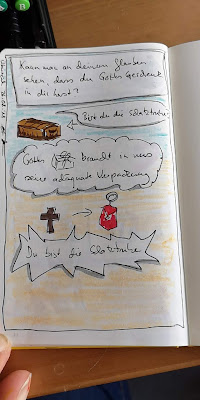 Kann man an deinem Glauben
sehen, dass du Gottes Geschenk
in dir hast?
Bist du die Schatztruhe
Gottes braucht in uns
seine adäquate Verpackung
Du bist die Schatztruhe